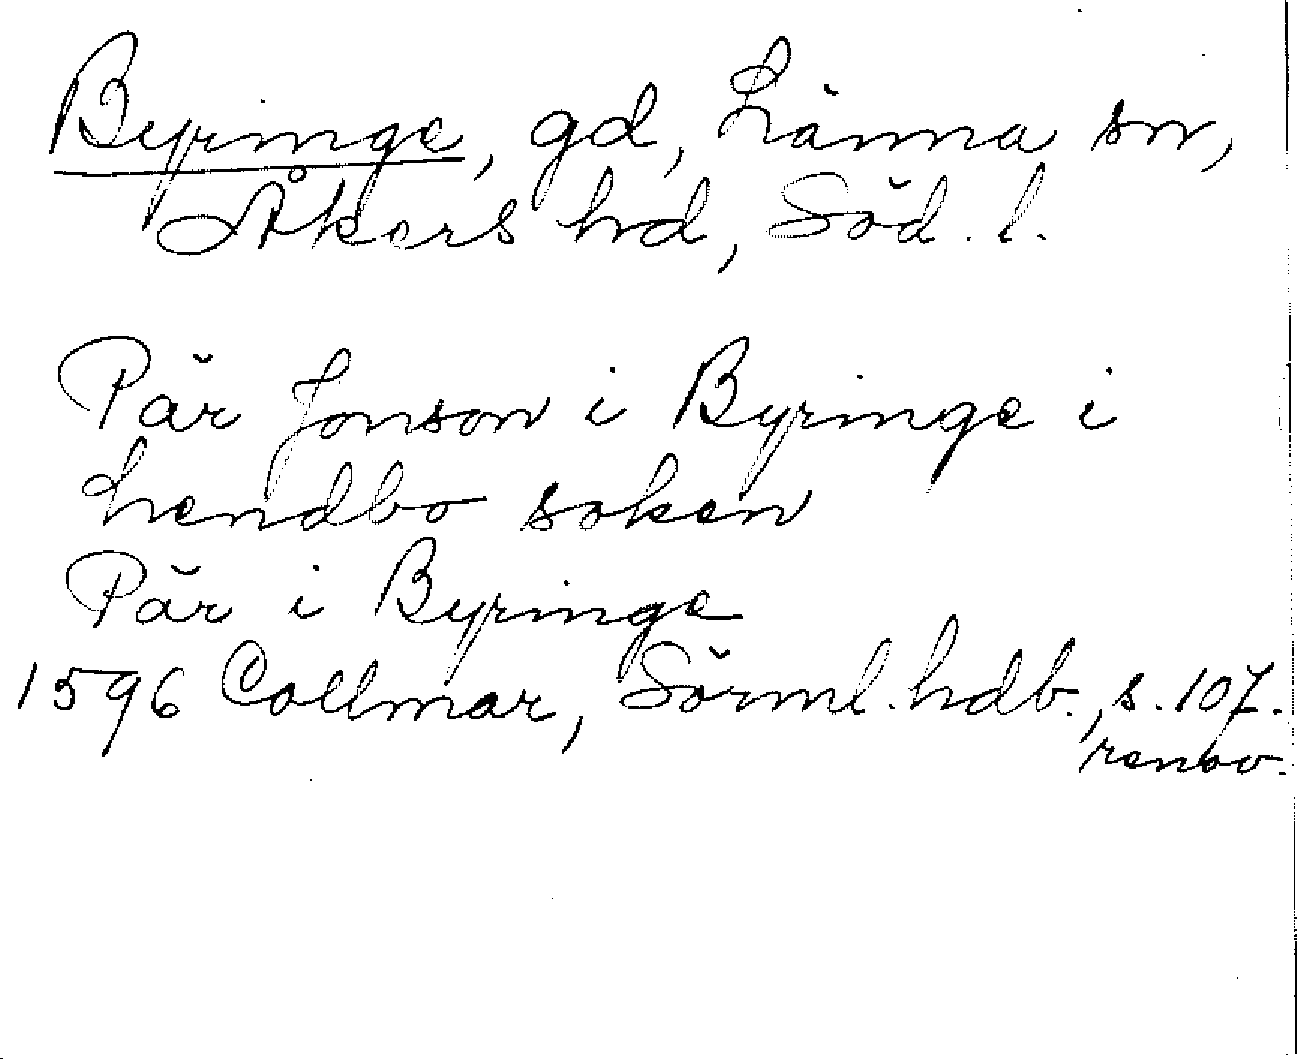 Byringe, gd, Länna sn,
Åkers hd, Söd. l.
Pär Jonson i Byringe i
Lendbo soken
Pär i Byringe
1596 Collmar, Sörml. hdb., s. 107.
renov.